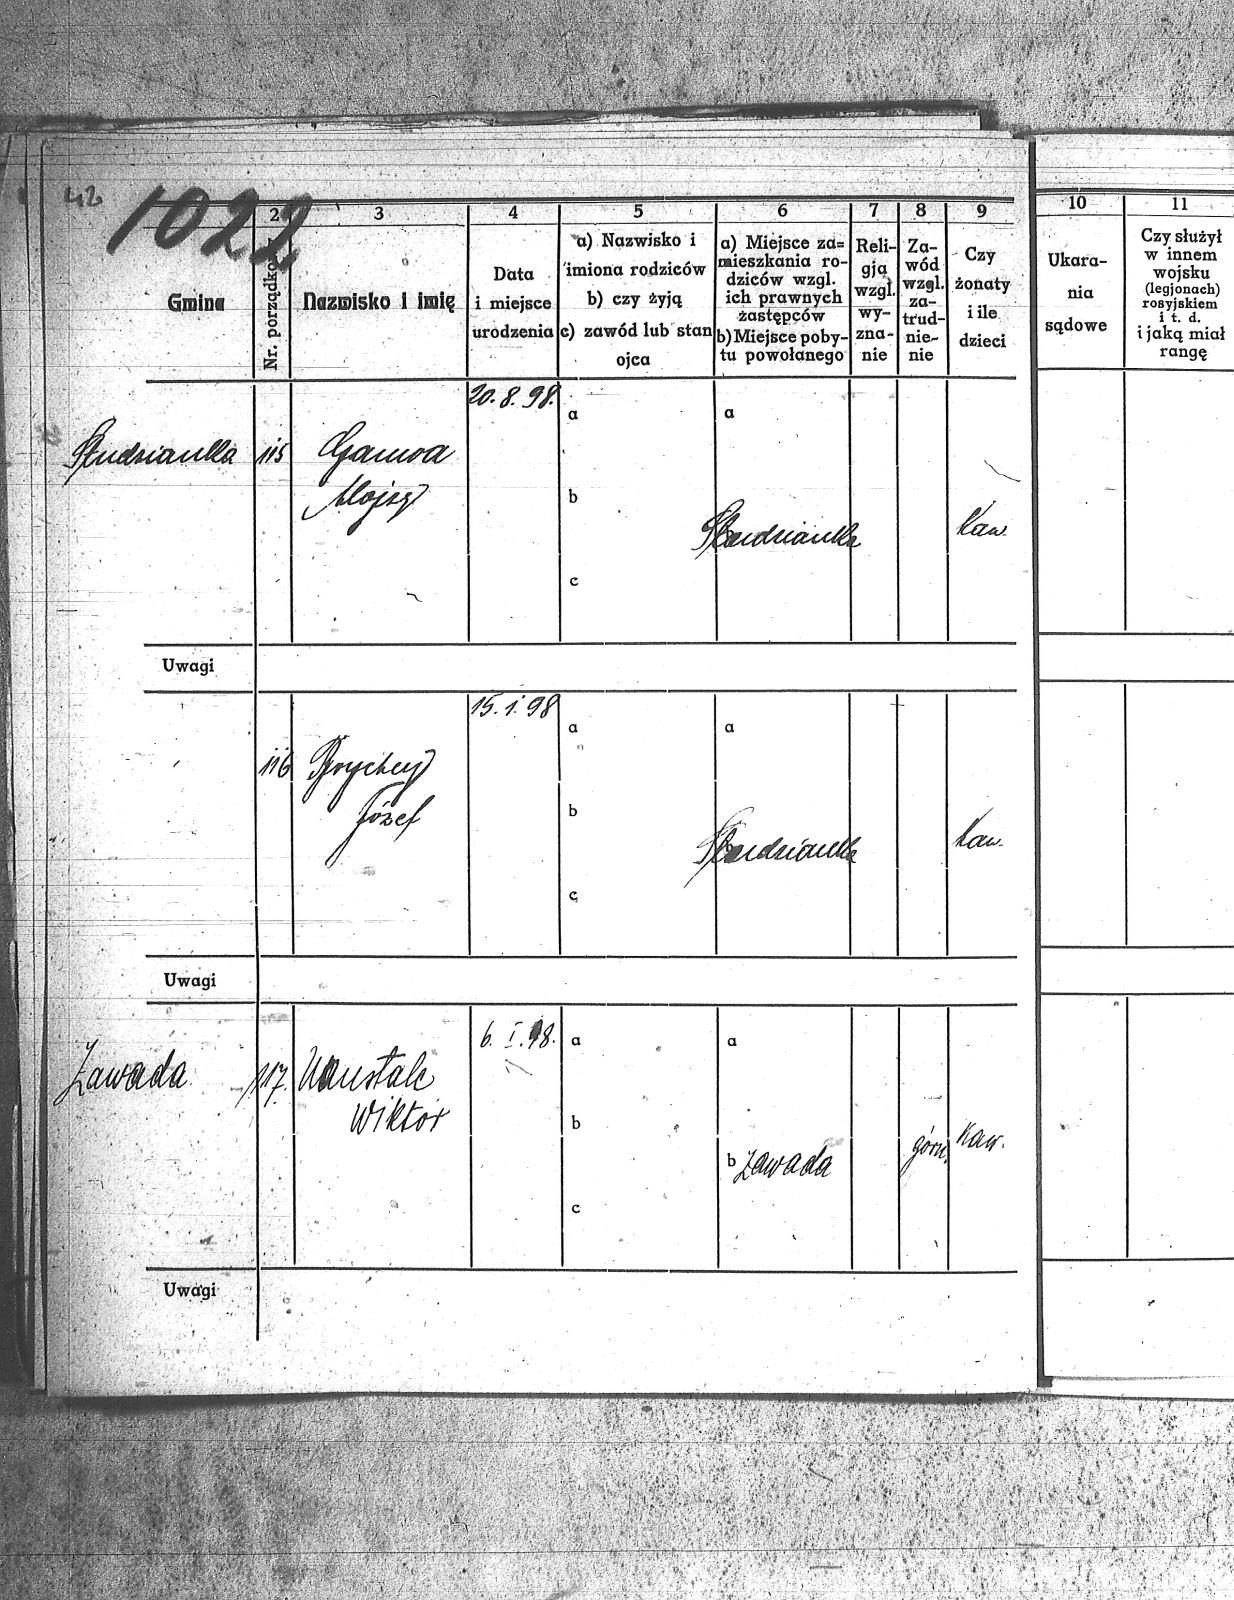 42
1022
2
3
4
5
6
7
8
9
10
11
Gmina
Nr. porządko.
Nazwisko i imię
Data
i miejsce
urodzenia
a) Nazwisko i
imiona rodziców
b) czy żyją
c) zawód lub stan
ojca
a) Miejsce za=
mieszkania ro-
dziców wzgl.
ich prawnych
zastępców
b) Miejsce poby-
tu powołanego
Reli-
gja
wzgl.
wy-
zna-
nie
Za-
wód
wzgl.
za-
trud-
nie-
nie
Czy
żonaty
i ile
dzieci
Ukara-
nia
sądowe
Czy służył
w innem
wojsku
(legjonach)
rosyjskiem
i t. d.
i jaką miał
rangę
20.8.98.
a
a
Studzianka
115
Gamoa
Alojzy
b
Studzianka
Kaw.
c
Uwagi
15.1.98
a
a
116
Brychcy
Józef
b
Studzianka
Kaw.
c
Uwagi
6.I.98.
a
a
Zawada
117.
Wiktor
b
b Zawada
górn.
Kaw.
c
Uwagi